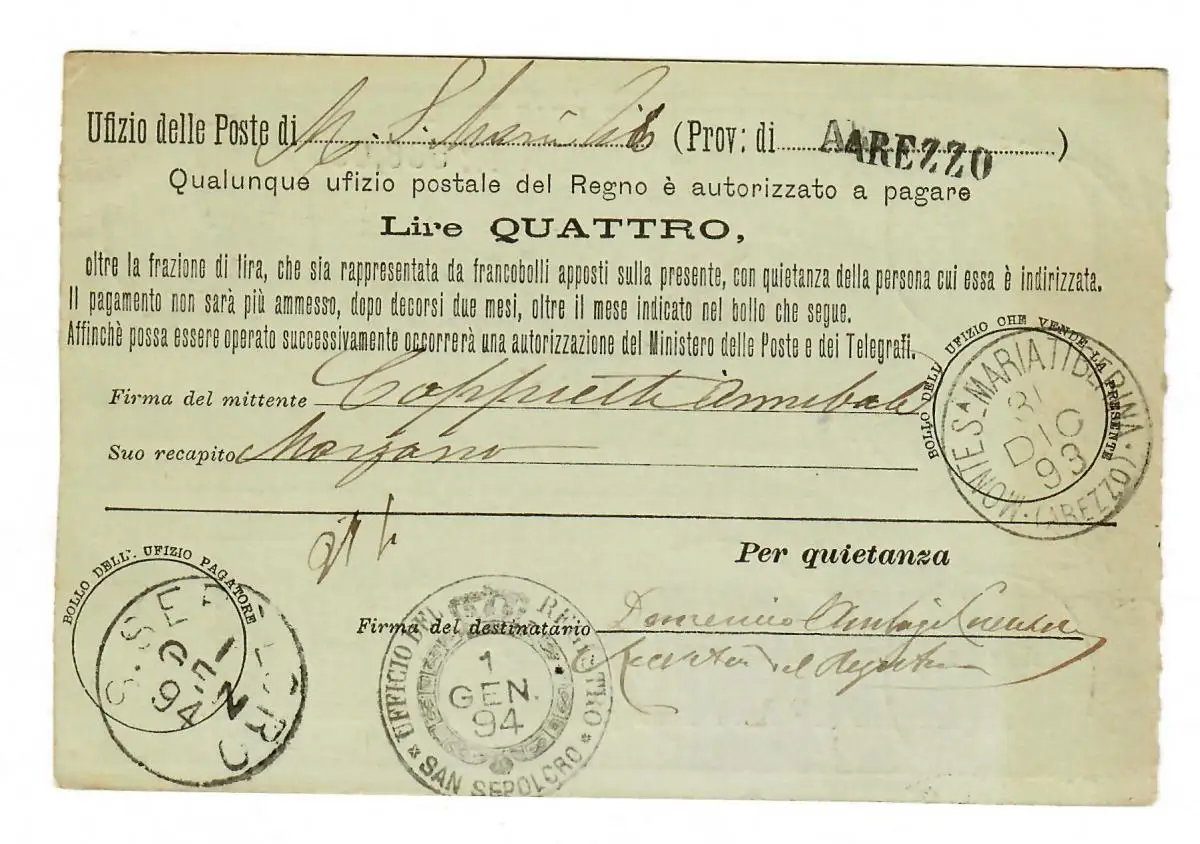 Ufizio delle Poste di M. S. Maria Tib (Prov: di AREZZO )
Qualunque ufizio postale del Regno è autorizzato a pagare
Lire QUATTRO,
oltre la frazione di lira, che sia rappresentata da francobolli apposti sulla presente, con quietanza della persona cui essa è indirizzata.
Il pagamento non sarà più ammesso, dopo decorsi due mesi, oltre il mese indicato nel bollo che segue.
Affinchè possa essere operato successivamente occorrerà una autorizzazione del Ministero delle Poste e dei Telegrafi.
BOLLO DELL' UFIZIO CHE VENDE LA PRESENTE
MONTE Sª MARIA TIBERINA · (AREZZO) ·
31
DIC
93
Firma del mittente Annibale
Suo recapito Marzano
Per quietanza
BOLLO DELL'. UFIZIO PAGATORE
S. SEPOLCRO
94
Firma del destinatario Domenico
UFFICIO DEL REGISTRO * SAN SEPOLCRO *
1
GEN.
94